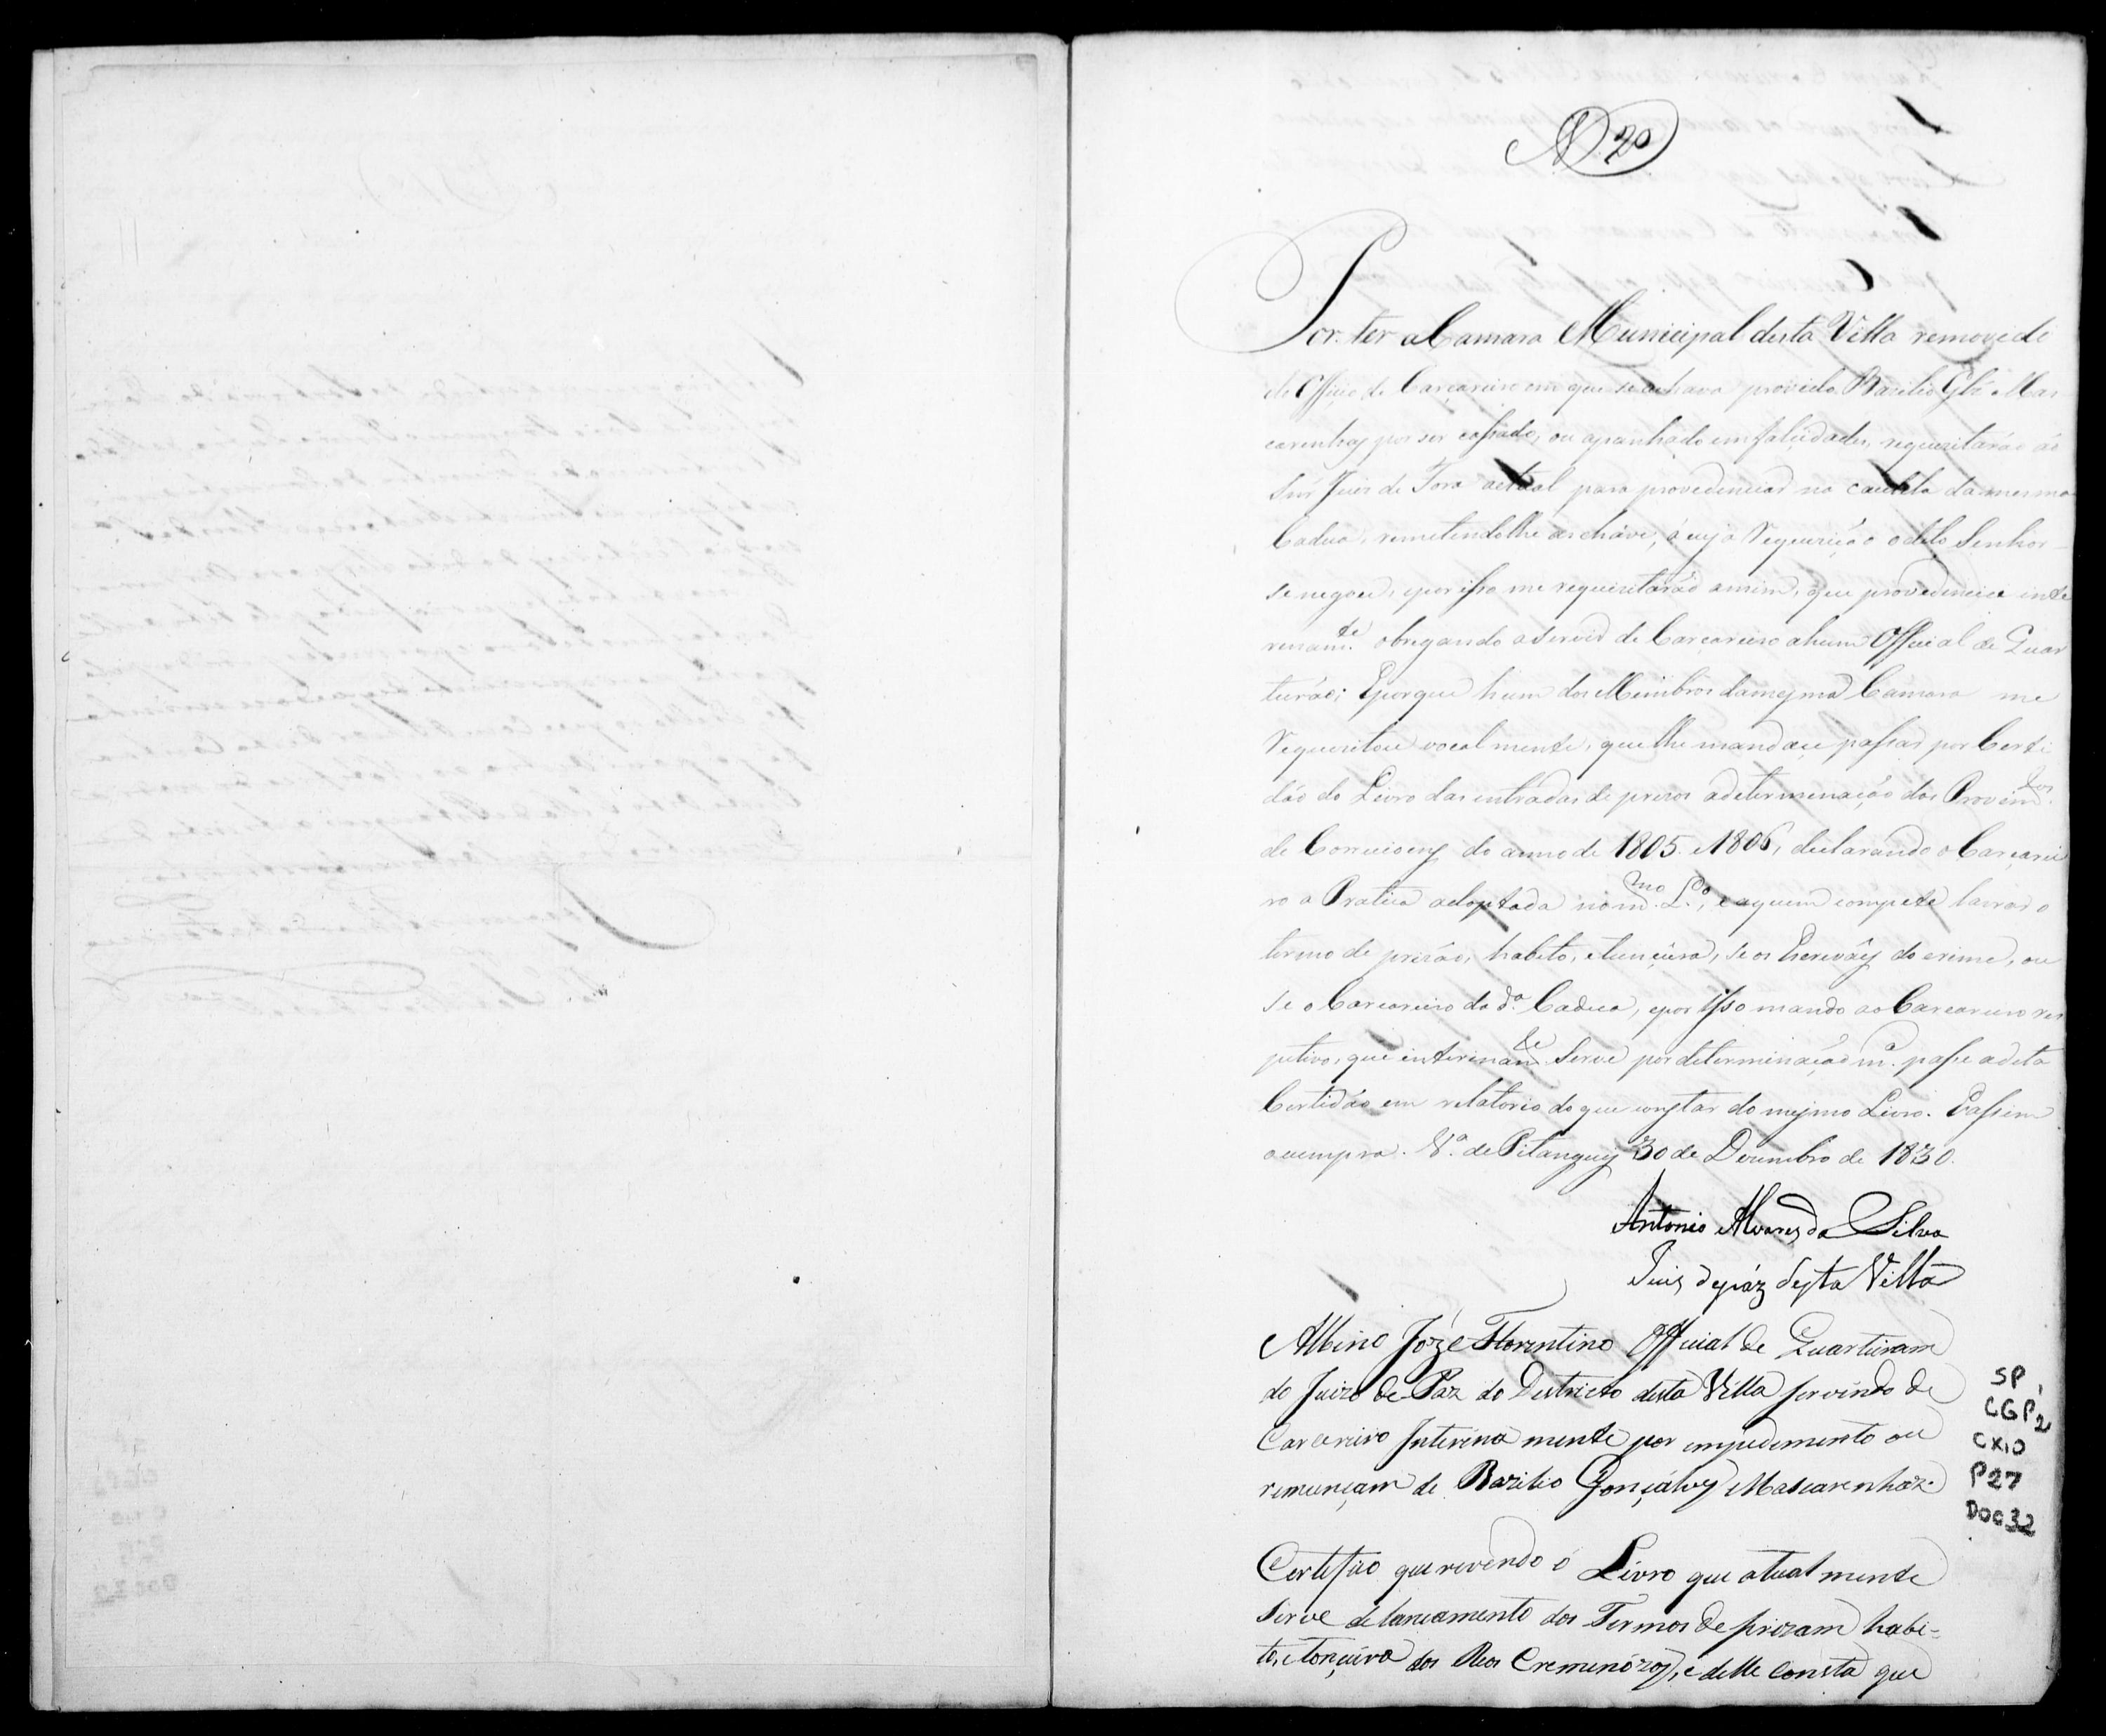 N. 20
Por ter a Camara Municipal desta Villa removido
do Officio de Carçareiro em que se achava provido Bazilio Glz' Mas
carenhas por ser cassado, ou apanhado em falcidades, requezitarão ao
Snr' Juis de Fora actual para providenciar na cautela da mesma
Cadea, remetendolhe as chaves, á cuja Requezição o dito Senhor
se negou, eporisso me requezitarão amim, que providencie inte
renam.te obrigando a servir de Carçareiro ahum Official de Quar
teirão; Eporque hum dos Membros damesma Camara me
Requezitou vocalmente, que lhe mandace passar por Certi
dão do Livro das entradas de prezos adeterminação dos Provim.tos
de Correiçoens do anno de 1805. e 1806, declarando o Carçarei
ro a Pratica adoptada nom.mo L.o, eaquem compete lavrar o
termo de prizão, habito, etonçura, se os Escrivães do crime, ou
se o Carcareiro da d.a Cadea, epor isso mando ao Carcareiro res
petivo, que interinam.te Serve por determinação m.a passe adita
Certidão em relatorio do que constar do mesmo Livro. Eassim
ocumpra. V.a de Pitanguy 30 de Dezembro de 1830.
Antonio Alvares da Silva
Juis depáz desta Villa
Albino Jozé Florentino Official de Quarteiram
do Juizo de Paz do Destricto desta Villa servindo de
Carcereiro Interina mente por impedimento ou
renunçiam de Bazilio Gonçalves Mascarenhaz.
Certefico que revendo o Livro que atual mente
Serve de lançamento dos Termos de prizam habi=
to, e tonçura dos Reos Cremenózos, e delle consta que
SP
CGP2
CX10
P27
D0032